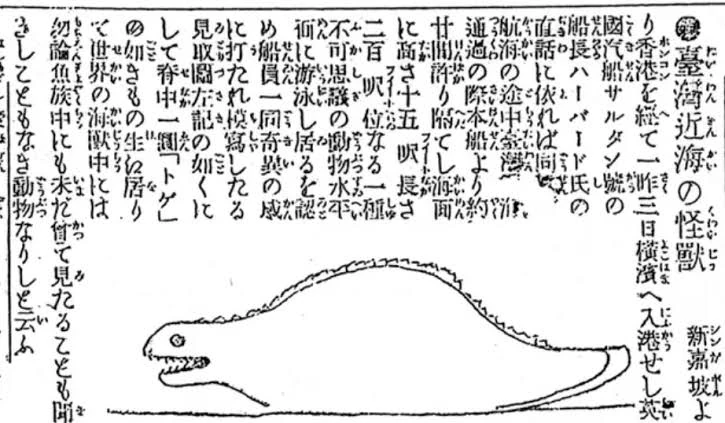 ●臺灣近海の怪獸　新嘉坡よ
り香港を經て一昨三日横濱へ入港せし英
國汽船サルダン號の
船長ハーバード氏の
直話に依れば同
航海の途中臺灣　海
通過の際本船より約
廿間許り隔てし海面
に高さ十五呎長さ
二百呎位なる一種
不可思議の動物水平
面に游泳し居るを認
め船員一同奇異の感
に打たれ模寫したる
見取圖左記の如くに
して脊中一圓「トゲ」
の如きもの生え居り
て世界の海獸中には
勿論魚族中にも未だ曾て見たることも聞
きしこともなき動物なりしと云ふ